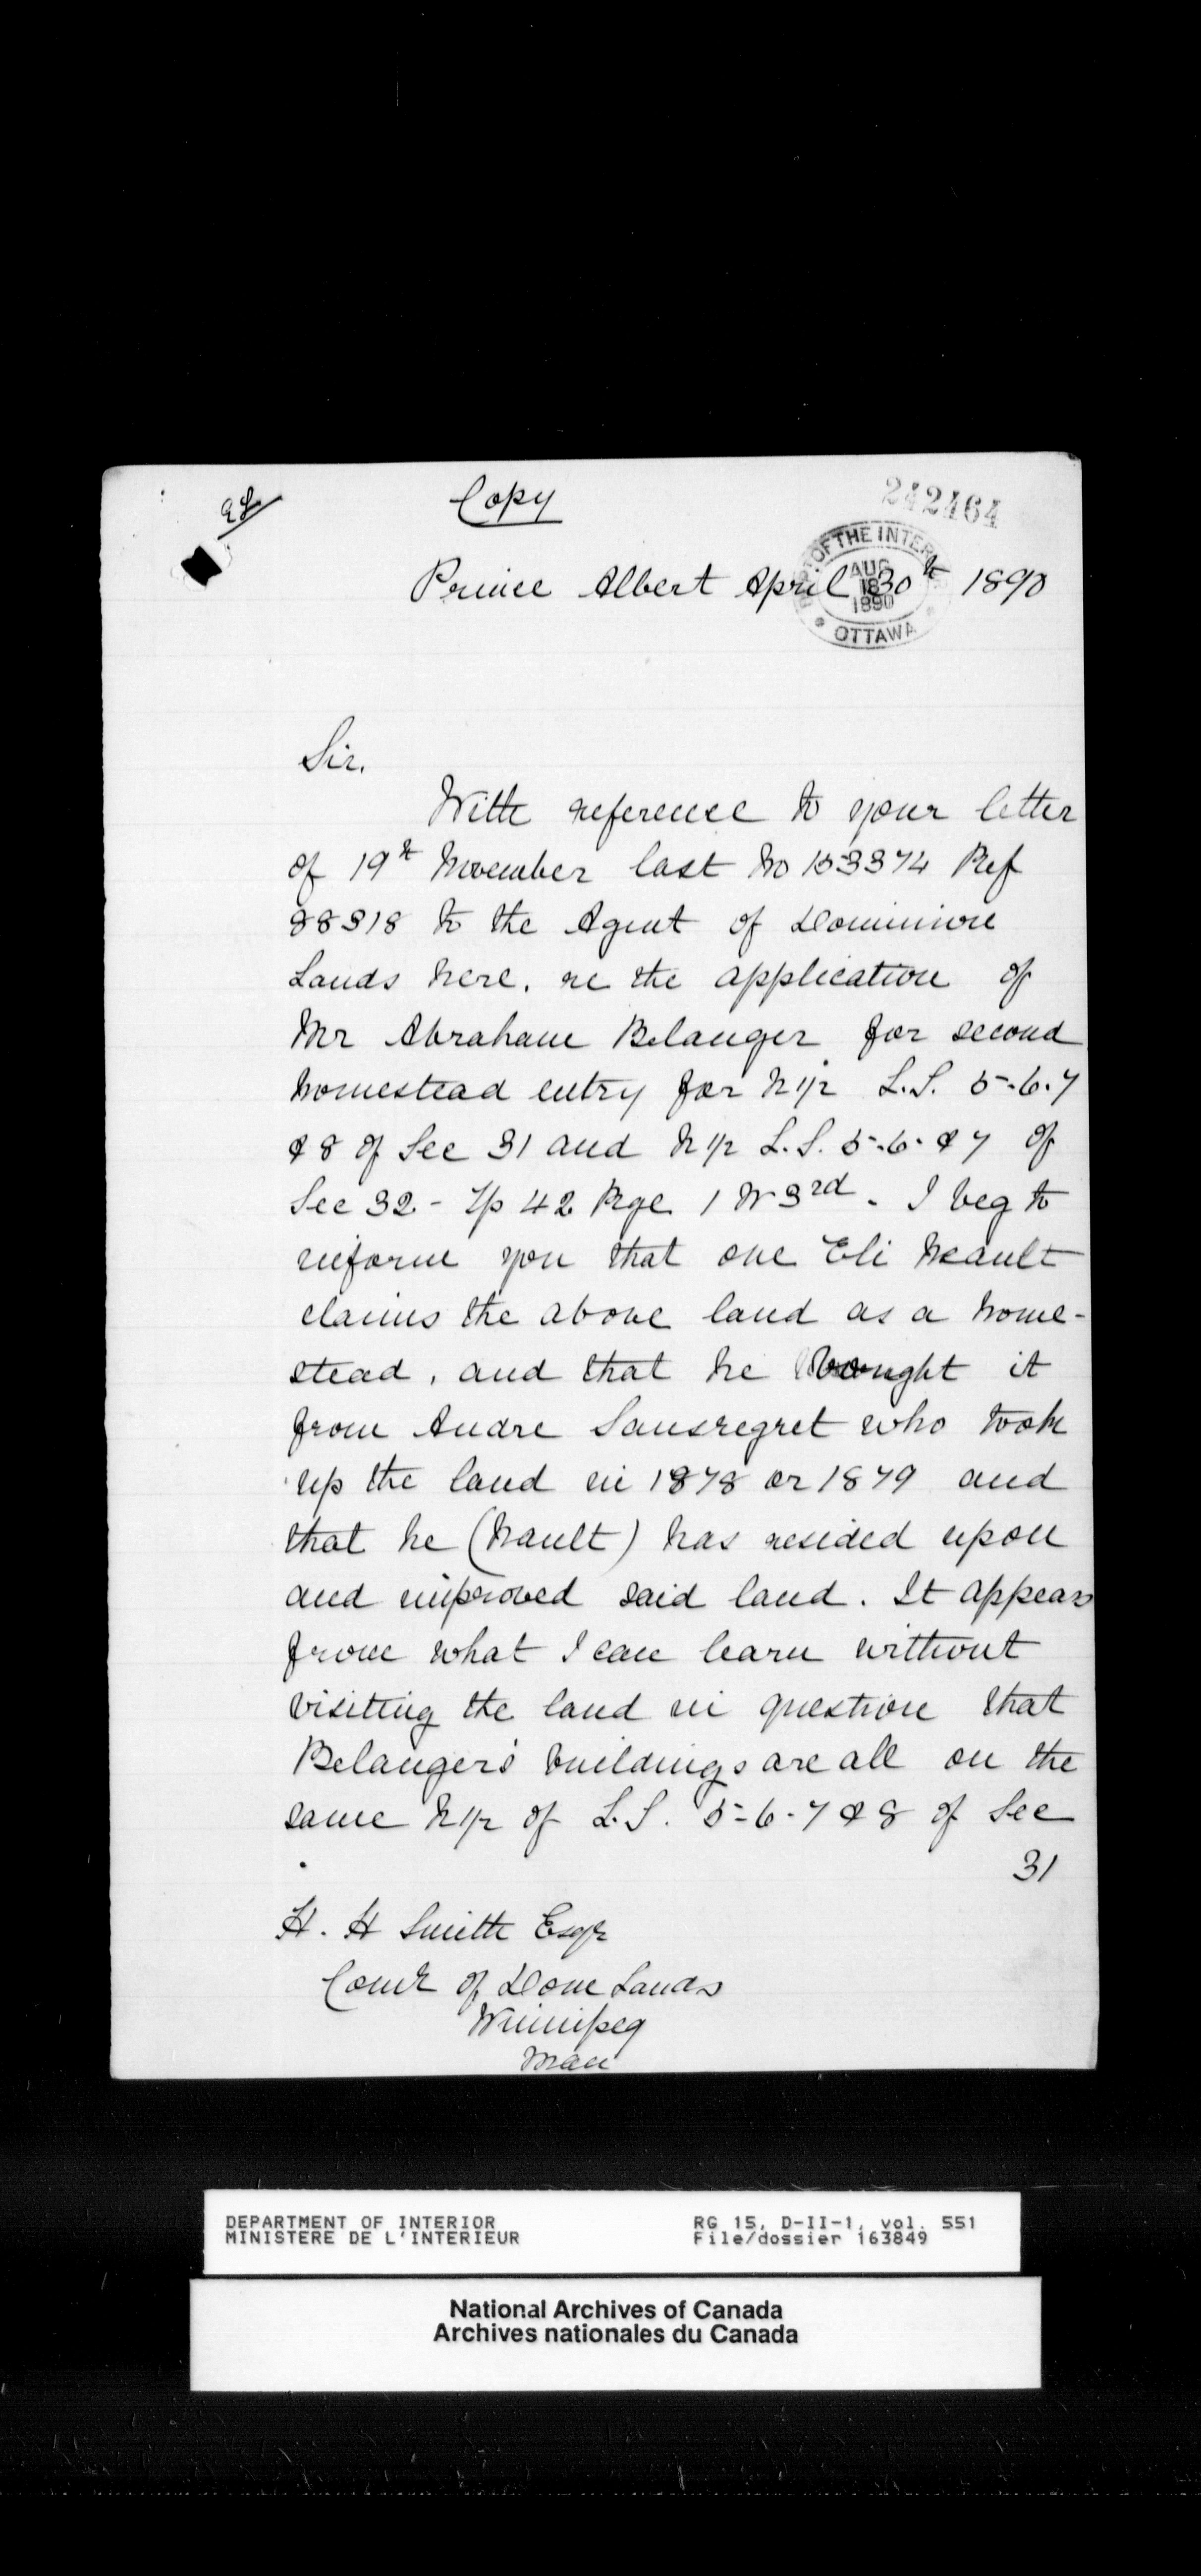 98
Copy
242464
DEPT. OF THE INTERIOR
AUG
18
1890
OTTAWA
Prince Albert April 30th 1890
Sir.
With reference to your letter
of 19th November last No 153374 Ref
88318 to the Agent of Dominion
Lands here, re the application of
Mr Abraham Belanger for second
homestead entry for N 1/2 L.S. 5-.6.7
& 8 of Sec 31 and N 1/2 L.S. 5-.6- & 7 of
Sec 32 - Tp 42 Rge 1 W 3rd. I beg to
inform you that one Eli Neault
claims the above land as a home-
stead, and that he bought it
from Andre Sansregret who took
up the land in 1878 or 1879 and
that he (Nault) has resided upon
and improved said land. It appears
from what I can learn without
visiting the land in question that
Belanger's buildings are all on the
same N 1/2 of L.S. 5-6-7 & 8 of Sec
31
H. H Smith Esqr
Comr of Dom Lands
Winnipeg
Man
DEPARTMENT OF INTERIOR
MINISTERE DE L'INTERIEUR
RG 15, D-II-1, vol. 551
File/dossier 163849
National Archives of Canada
Archives nationales du Canada